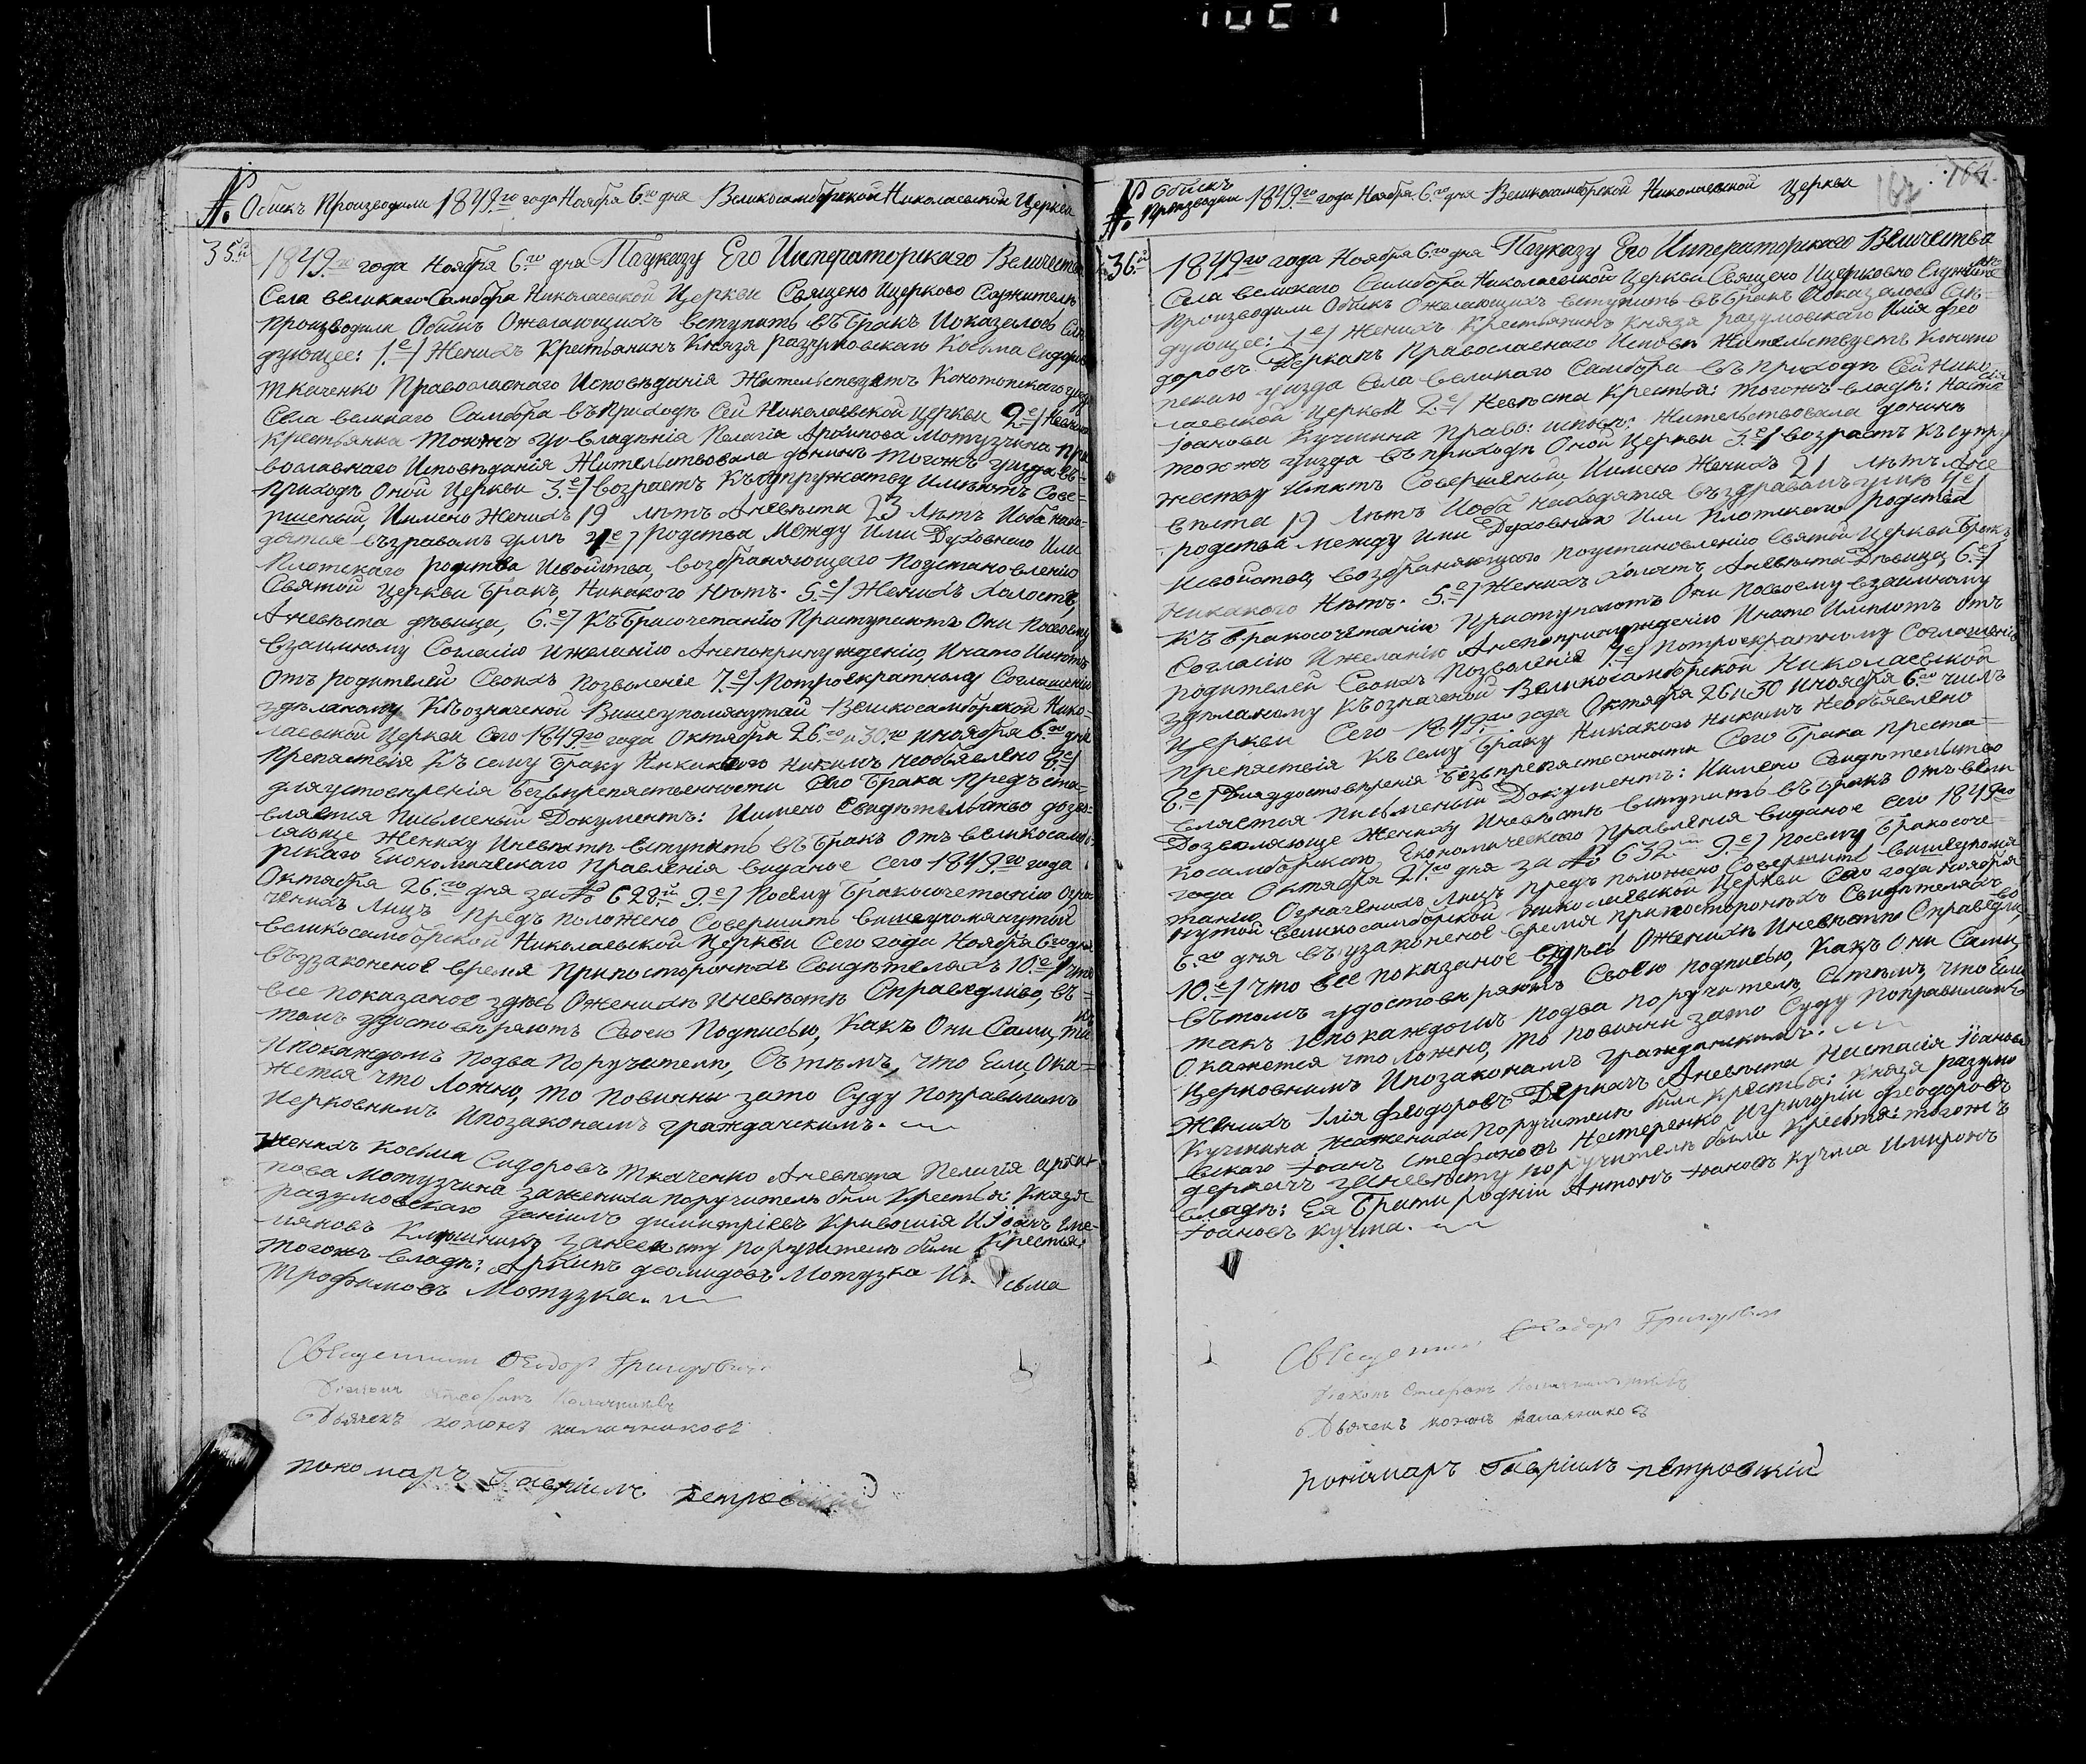 № Обискъ Производили 1849.го года Ноября 6.го дня Великосамборской Николаевской Церкви
35.й
1849.го года Ноября 6.го дня Поуказу Его Императорскаго Величества
Села великаго Самбора Николаевской Церкви Священо Ицерково Служители
производили Обискъ Ожелающихъ вступить въ Бракъ Иоказалось Слѣ
дующее: 1.е] Женихъ Крестьянинъ Князя разумовскаго Косьма Сидоровъ
Ткаченко Православнаго Исповѣданія Жительствуетъ Конотопскаго уезда
Села великаго Самбора въ Приходѣ Сей Николаевской Церкви 2.е] Невѣста
Крестьянка тогожъ Владѣнія Пелагія Архипова Мотузчина пра
вославнаго Исповѣданія Жительствовала донинѣ тогожъ уезда въ
Приходѣ Оной Церкви 3.е] возрастъ Къ супружеству Имѣютъ Сове-
ршеный, Имено Женихъ 19 лѣтъ Аневѣста 23 лѣтъ Иоба нахо-
дятся въ здравомъ умѣ 4.е] родства Между Ими Духовнаго Или
Плотскаго родства Исвойства, возбраняющаго Поустановленію
Святой Церкви Бракъ, Никакого Нѣтъ. 5.е] Женихъ Холостъ,
Аневѣста дѣвица, 6.е] Къ Бракосочетанію Приступаютъ Они Посвоему
взаимному Согласію Ижеланію Анепопринужденію, Инато Имѣютъ
Отъ родителей Своихъ позволеніе 7.е] Потроекратному Соглашенію
здѣланому Къозначеной Вишеупомянутой Великосамборской Нико-
лаевской Церкви Сего 1849.го года Октября 26.го и 30.го Иноября 6.го дня
Препятствія Къ сему Браку Никакого никимъ необъявлено 8.е]
дляудостовѣренія Безъпрепятственности Сего Брака предъста-
вляется Письменый Документъ: Имено Свидѣтельство дозво-
ляюще Жениху Иневѣстѣ вступить въ Бракъ Отъ великосамбо-
рскаго Економическаго Правленія виданое сего 1849.го года
Октября 26.го дня за № 628.м 9.е] Посему Бракосочетанію Озна
ченихъ Лицъ предъположено Совершить вишеупомянутой
великосамборской Николаевской Церкви Сего года Ноября 6.го дня
въузаконеное время Припостороннхъ Свидѣтеляхъ 10.е] что
все показаное здѣсь Оженихѣ Иневѣстѣ Справедливо, въ
томъ удостовѣряютъ Своею Подписью, Какъ Они Сами, такъ
Ипокаждомъ подва Поручители, Сътѣмъ, что Если, Ока-
жется что Ложно, то повинны зато Суду Поправиламъ
Церковнимъ Ипозаконамъ гражданскимъ.
Женихъ Косьма Сидоровъ Ткаченко Аневѣста Пелагія Архи
пова Мотузчина зажениха поручитель били Крестья: Князя
разумовскаго Даніилъ димитріевъ Кривошія Иіоанъ Еме-
ляновъ заневѣсту поручители били Крестья:
тогожъ владѣ: Архипъ діомидовъ Мотузка И сьма
Трофимовъ Мотузка.
Священникъ Феодоръ Григоровичъ
Діаконъ Стефанъ Калачниковъ
Дьячекъ кононъ калачниковъ
пономаръ Гавріилъ петровскій
№ Обискъ Производили 1849.го года Ноября 6.го дня Великосамборской Николаевской Церкви
164.
36.й
1849.го года Ноября 6.го дня Поуказу Его Императорскаго Величества
Села великаго Самбора Николаевской Церкви Священо Ицерковно Служители
Производили Обискъ Ожелающихъ вступить въ Бракъ Иоказалось Слѣ-
дующее: 1.е] Женихъ Крестьянинъ Князя разумовскаго Илія Фео
доровъ Деркачъ Православнаго Исповѣ: Жительствуетъ Коното
пскаго уизда Села великаго Самбора въ Приходѣ Сей Нико
лаевской Церкви 2.е] Невѣста Крестья: тогожъ владѣ: Настасія
Іоанова Кучмина Право: испов: Жительствовала донинѣ
тогожъ уизда въ приходѣ Оной Церкви 3.е] возрастъ Къ супру
жеству Имѣютъ Совершеный, Имено Женихъ 21 лѣтъ Ане
вѣста 19 лѣтъ Иоба находятся въ здравомъ умѣ 4.е]
родства между Ими Духовнаго Или Плотскаго родства
Исвойства, возбраняющаго поустановленію Святой Церкви Бракъ
Никакого Нѣтъ. 5.е] Женихъ Холостъ, Аневѣста Дѣвица, 6.е]
Къ Бракосочетанію Приступаютъ Они Посвоему взаимному
Согласію Ижеланію Анепопринужденію Инато Имѣютъ Отъ
родителей Своихъ Позволенія 7.е] Потроекратному Соглашенію
здѣланому Къозначеной Великосамборской Николаевской
Церкви Сего 1849.го года Октября 26 и 30 Иноября 6.го числъ
препятствія Къ сему Браку Никакого никимъ Необъявлено
8.е] Дляудостовѣренія Безъпрепятственности Сего Брака Преста-
вляется Писменый Документъ: Имено Свидѣтельство
Дозволяюще Жениху Иневѣстѣ вступить въ Бракъ Отъ вели
косамборскаго Економическаго Правленія виданое Сего 1849.го
года Октября 27.го дня за № 632.м 9.е] Посему Бракосоче-
танію Означенихъ Лицъ предъ положено Совершить вишеупомя
нутой великосамборской Николаевской Церкви Сего года Ноября
6.го дня въ узаконеное время припостороннхъ Свидѣтеляхъ
10.е] что все показаное здѣсь Оженихѣ Иневѣстѣ Справедливо
вътомъ удостовѣряютъ Своею подписью, Какъ Они Сами,
такъ Ипокаждомъ подва поручители, Стѣмъ, что Если
Окажется что Ложно, то повинни зато Суду Поправиламъ
Церковнимъ Ипозаконамъ гражданскимъ.
Женихъ Ілія Феодоровъ Деркачъ Аневѣста Настасія Іоанова
Кучмина Зажениха поручители били Крестья: Князя разумо
вскаго Іоанъ Стефановъ Нестеренко Игригорій Феодоровъ
деркачъ заневѣсту поручители били Крестья: тогожъ
владѣ: Ея Брати родніи Антонъ Іоановъ Кучма Имиронъ
Іоановъ Кучма.
Священникъ Феодоръ Григоровичъ
Діаконъ Стефанъ Калачниковъ
Дьячекъ кононъ калачниковъ
пономаръ Гавріилъ петровскій